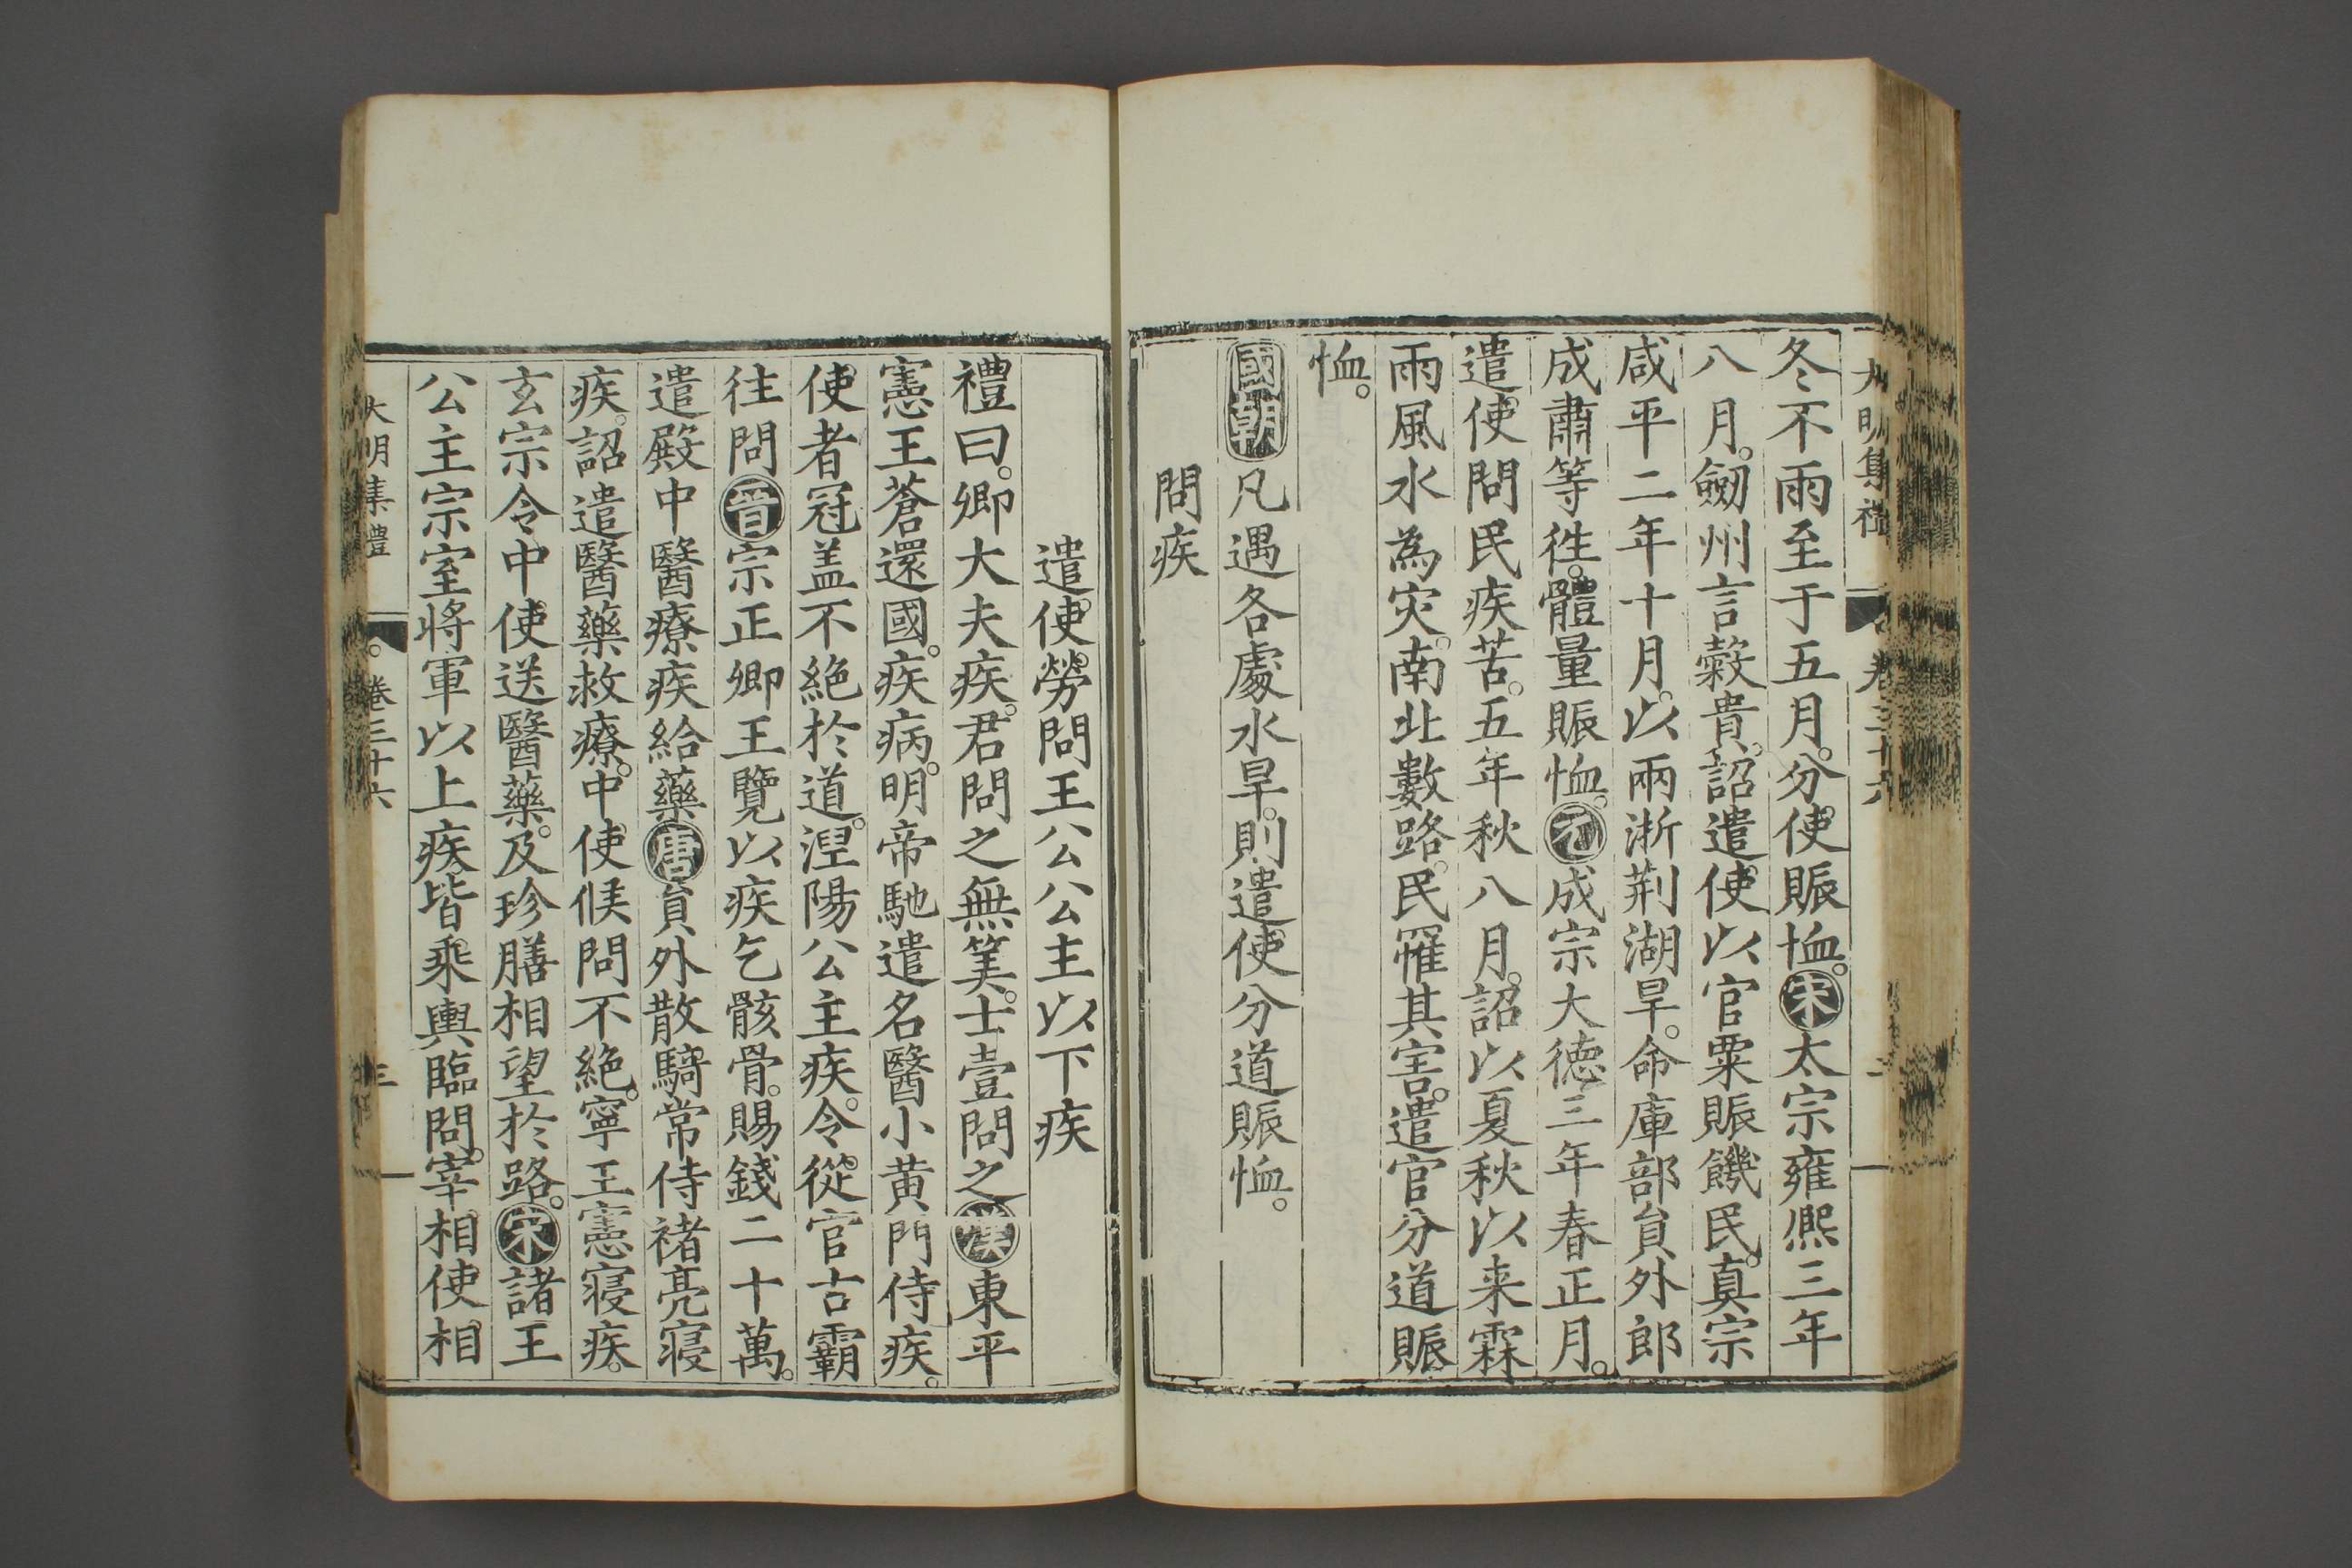 大明集禮
卷三十六
冬不雨至于五月。分使賑恤。宋太宗雍熙三年
八月。劒州言糓貴。詔遣使以官粟賑饑民。真宗
咸平二年十月。以兩浙荆湖旱。命庫部貟外郎
成肅等徃。體量賑恤。元成宗大德三年春正月。
遣使問民疾苦。五年秋八月。詔以夏秋以来霖
雨風水為灾。南北數路。民罹其害。遣官分道賑
恤。
國朝凡遇各處水旱。則遣使分道賑恤。
問疾
遣使勞問王公公主以下疾
禮曰。卿大夫疾。君問之無筭。士壹問之漢東平
憲王蒼還國。疾病。明帝馳遣名醫小黄門侍疾。
使者冠盖不絶於道。湼陽公主疾。令從官古霸
往問晉宗正卿王覽以疾乞骸骨。賜錢二十萬。
遣殿中醫療疾給藥唐貟外散騎常侍禇亮寝
疾。詔遣醫藥救療。中使候問不絶。寧王憲寝疾。
玄宗令中使送醫藥。及珍膳相望於路。宋諸王
公主宗室將軍以上疾。皆乘輿臨問。宰相使相
大明集禮
卷三十六
三